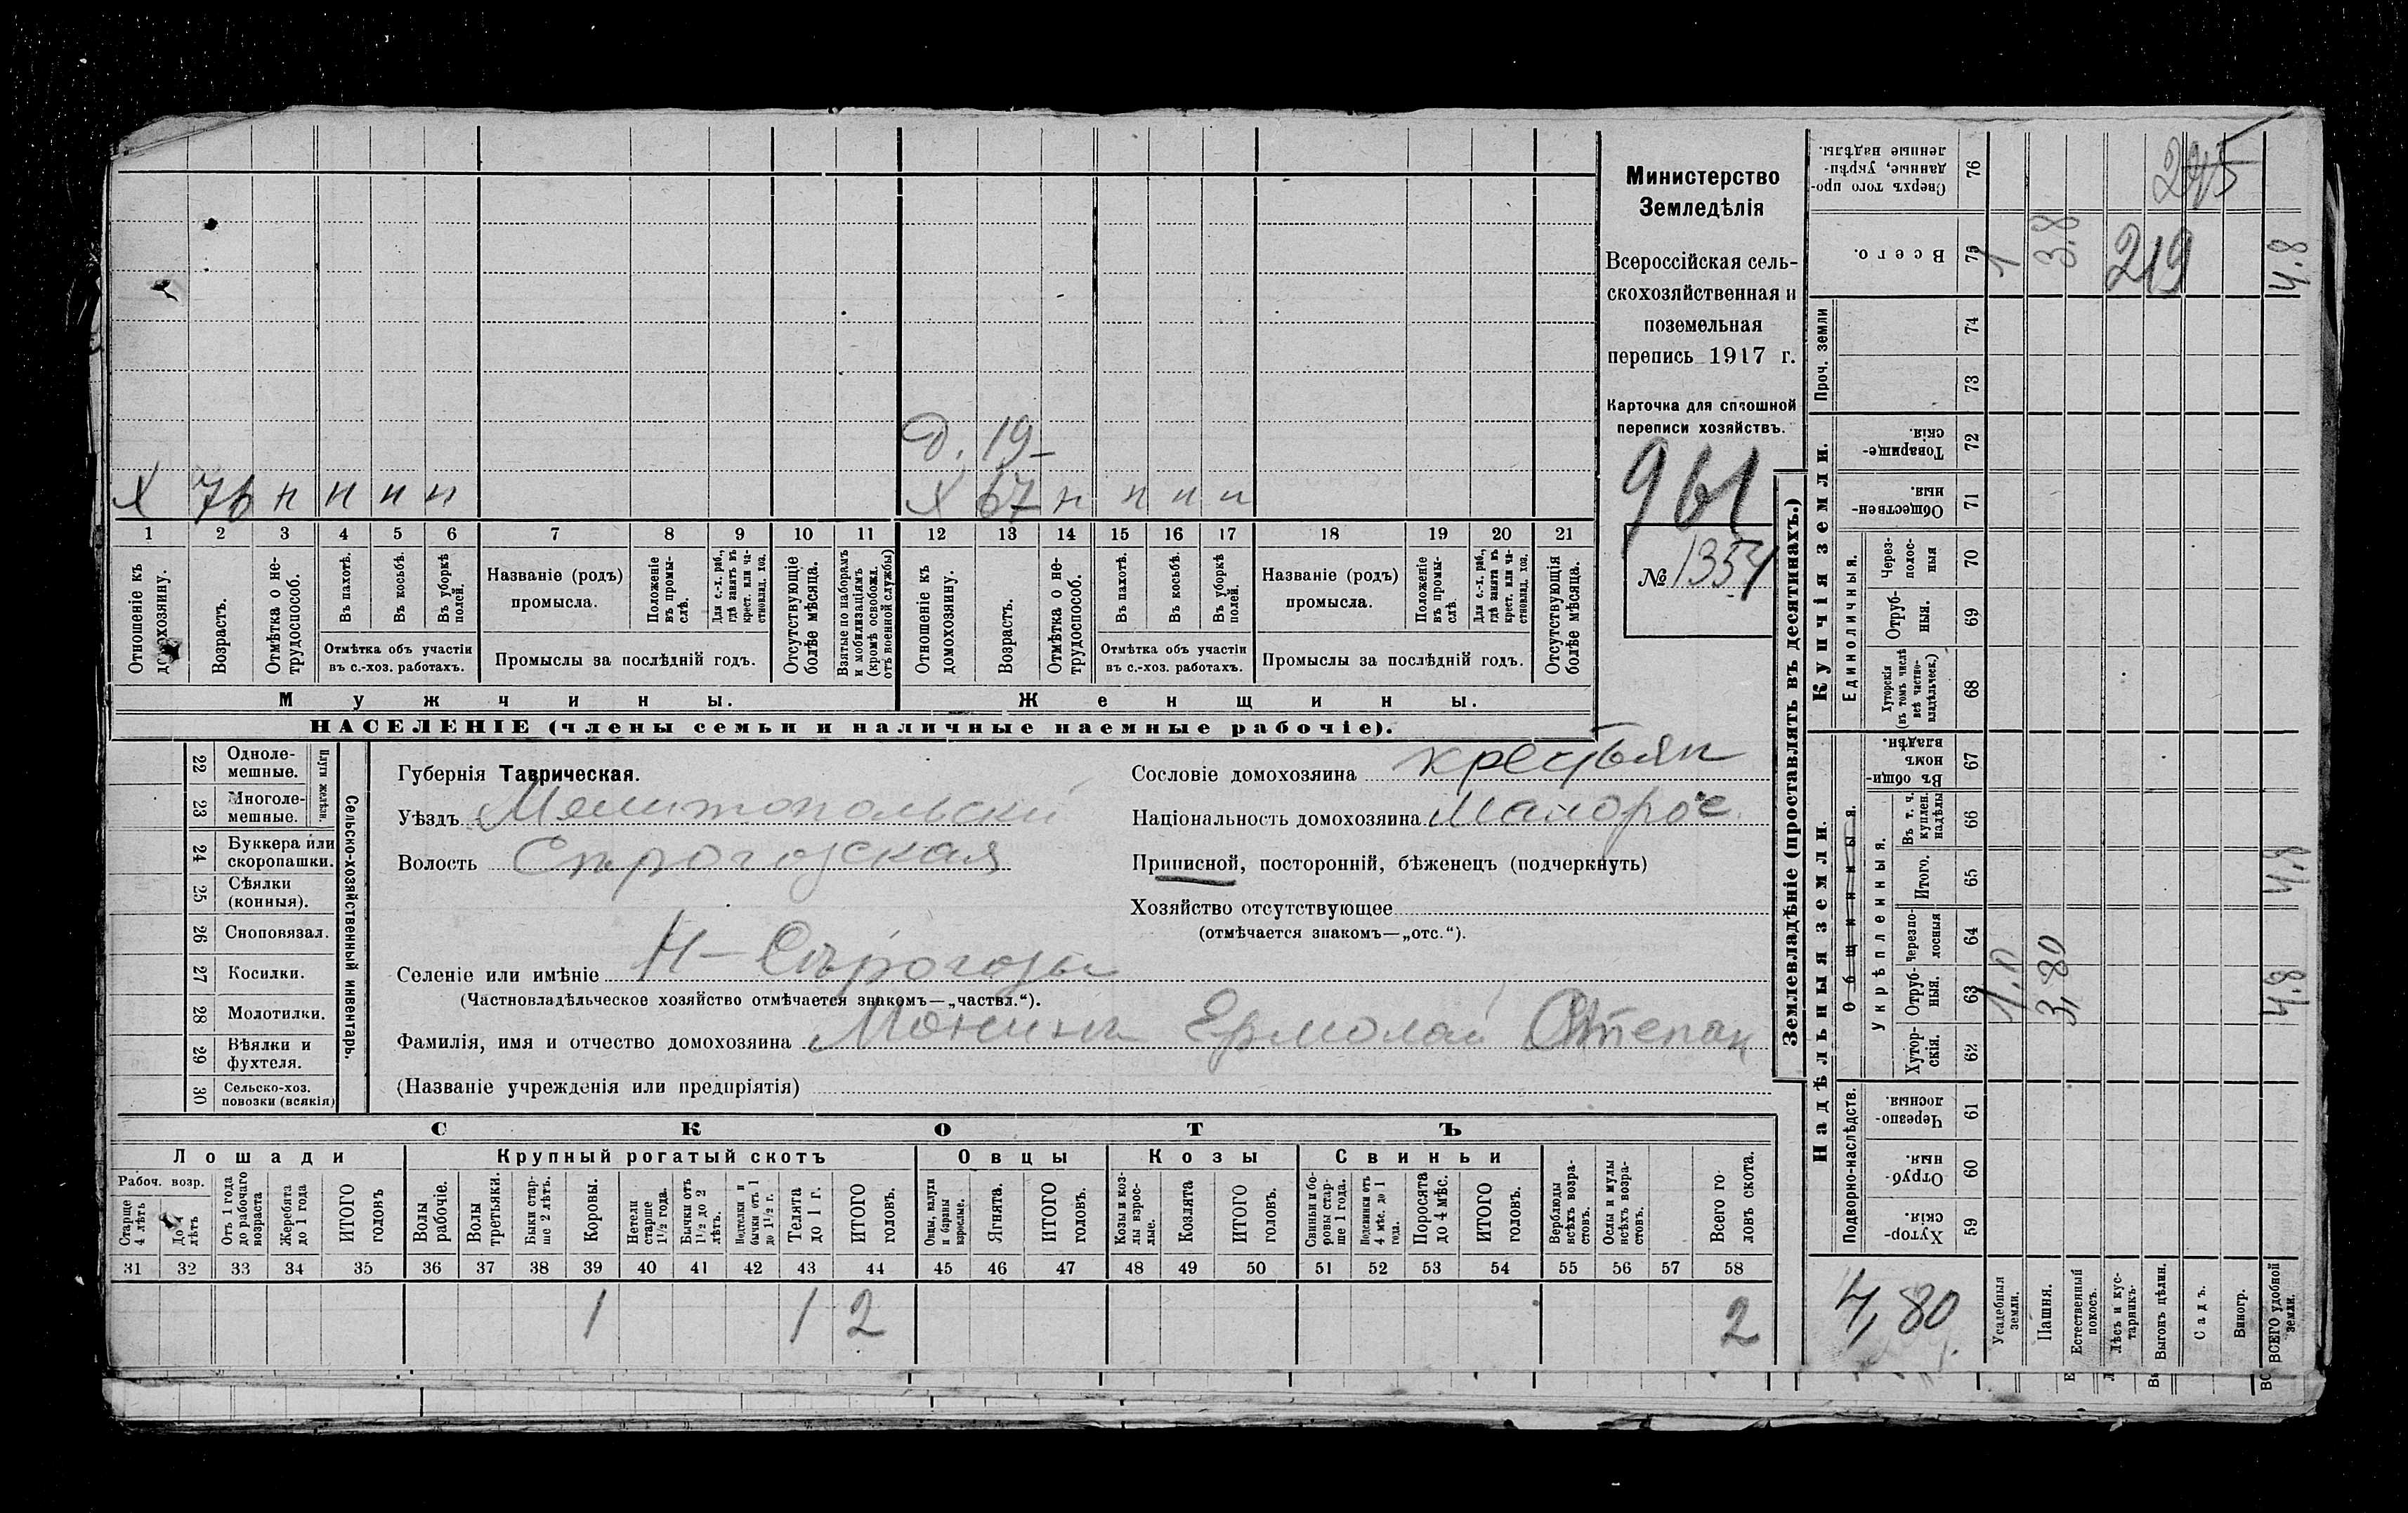 Министерство
Земледѣлія
Всероссійская сель-
скохозяйственная и
поземельная
перепись 1917 г.
Карточка для сплошной
переписи хозяйствъ.
961
№ 1354
Д. 19
Х 76 н н н н
Х 67 н н н н
1 2 3 4 5 6 7 8 9 10 11 12 13 14 15 16 17 18 19 20 21
Отношеніе къ домохозяину.
Возрастъ.
Отмѣтка о не-трудоспособ.
Въ пахотѣ.
Въ косьбѣ.
Въ уборкѣ полей.
Отмѣтка объ участіи
въ с.-хоз. работахъ.
Названіе (родъ)
промысла.
Положеніе въ промы-слѣ.
Для с.-х. раб., гдѣ занятъ въ крест. или ча-стновлад. хоз.
Промыслы за послѣдній годъ.
Отсутствующіе болѣе мѣсяца.
Взятые по наборамъ и мобилизаціямъ (кромѣ освобожд. отъ военной службы)
Отношеніе къ домохозяину.
Возрастъ.
Отмѣтка о не-трудоспособ.
Въ пахотѣ.
Въ косьбѣ.
Въ уборкѣ полей.
Отмѣтка объ участіи
въ с.-хоз. работахъ.
Названіе (родъ)
промысла.
Положеніе въ промы-слѣ.
Для с.-х. раб., гдѣ занята въ крест. или ча-стновлад. хоз.
Промыслы за послѣдній годъ.
Отсутствующія болѣе мѣсяца.
Мужчины.
Женщины.
НАСЕЛЕНІЕ (члены семьи и наличные наемные рабочіе).
Сельско-хозяйственный инвентарь.
Плуги желѣзн.
22 Одноле-мешные.
23 Многоле-мешные.
24 Буккера или скоропашки.
25 Сѣялки (конныя).
26 Сноповязал.
27 Косилки.
28 Молотилки.
29 Вѣялки и фухтеля.
30 Сельско-хоз. повозки (всякія)
Губернія Таврическая.
Уѣздъ Мелитопольскій
Волость Сѣрогозская
Сословіе домохозяина крестьян
Національность домохозяина Малорос
Приписной, посторонній, бѣженецъ (подчеркнуть)
Хозяйство отсутствующее
(отмѣчается знакомъ—„отс.“).
Селеніе или имѣніе Н-Сѣрогозы
(Частновладѣльческое хозяйство отмѣчается знакомъ—„частвл.“).
Фамилія, имя и отчество домохозяина Ермолай Степан
(Названіе учрежденія или предпріятія)
СКОТЪ
Лошади
Крупный рогатый скотъ
Овцы
Козы
Свиньи
Рабоч. возр.
Старше 4 лѣтъ
До 4 лѣтъ
Отъ 1 года до рабочаго возраста
Жеребята до 1 года
ИТОГО головъ
Волы рабочіе.
Волы третьяки.
Быки стар-ше 2 лѣтъ.
Коровы.
Нетели старше 1½ года.
Бычки отъ 1½ до 2 лѣтъ.
бычки отъ 1 до 1½ г.
Телята до 1 г.
ИТОГО головъ.
Овцы, валухи и бараны взрослые.
Ягнята.
ИТОГО головъ.
Козы и коз-лы взрос-лые.
Козлята
ИТОГО головъ.
Свиньи и бо-ровы стар-ше 1 года.
Подсвинки отъ 4 мѣс. до 1 года.
Поросята до 4 мѣс.
ИТОГО головъ.
Верблюды всѣхъ возра-стовъ.
Ослы и мулы всѣхъ возра-стовъ.
Всего го-ловъ скота.
31 32 33 34 35 36 37 38 39 40 41 42 43 44 45 46 47 48 49 50 51 52 53 54 55 56 57 58
1 1 2 2
Землевладѣніе (проставлять въ десятинахъ.)
Надѣльныя земли.
Купчія земли.
Проч. земли
Подворно-наслѣдств.
Общинныя.
Укрѣпленныя.
Единоличныя.
Сверхъ того про-данные, укрѣп-ленные надѣлы. 76
Всего. 75
74
73
Товарище-скія. 72
Обществен-ныя. 71
Через-полос-ныя 70
Отруб-ныя. 69
Хуторскія (въ томъ числѣ всѣ частно-владѣльческ.) 68
Въ общин-номъ владѣн. 67
Въ т. ч. куплен. надѣлы 66
Итого. 65
Черезпо-лосныя 64
Отруб-ныя. 63
Хутор-скія. 62
Черезпо-лосныя. 61
Отруб-ныя. 60
Хутор-скія. 59
245
1 3.8 219 4.8
4.8
1.0 3,80 4.8
4,80
Усадебныя земли.
Пашня.
Естественный покосъ.
Лѣсъ и кус-тарникъ.
Выгонъ цѣлин.
Садъ.
Виногр.
ВСЕГО удобной земли.